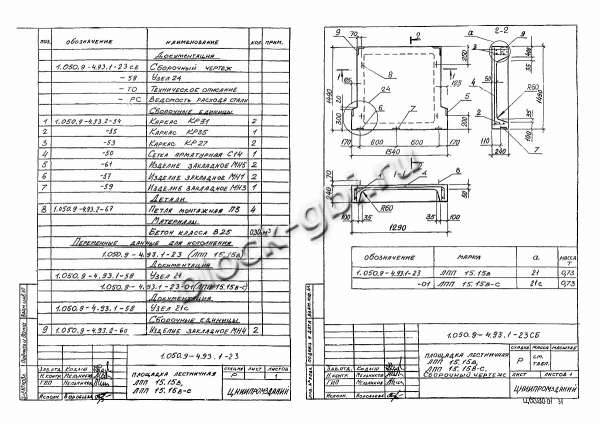 поз. обозначение наименование кол. прим.
Документация
1.050.9-4.93.1-23 СБ Сборочный чертеж
-58 Узел 24
-ТО Техническое описание
-РС Ведомость расхода стали
Сборочные единицы
1 1.050.9-4.93.2-34 Каркас КР31 2
2 -35 Каркас КР35 1
3 -53 Каркас КР27 2
4 -50 Сетка арматурная С14 1
5 -61 Изделие закладное МН5 2
6 -57 Изделие закладное МН1 2
7 -59 Изделие закладное МН3 1
Детали
8 1.050.9-4.93.2-67 Петля монтажная П3 4
Материалы
Бетон класса В25 м³
Переменные данные для исполнения
1.050.9-4.93.1-23 (ЛПП 15.15в)
Документация
1.050.9-4.93.1-58 Узел 21
1.050.9-4.93.1-23-01 (ЛПП 15.15в-с)
Документация
1.050.9-4.93.1-58 Узел 21с
Сборочные единицы
9 1.050.9-4.93.2-60 Изделие закладное МН4 2
1.050.9-4.93.1-23
Площадка лестничная
ЛПП 15.15в,
ЛПП 15.15в-с
стадия лист листов
Р 1
ЦНИИПРОМЗДАНИЙ
2-2
1-1
1490
1340
170 600 600 170
24
R60
110
240
70
100 35 35 100
1290
обозначение марка а масса т
1.050.9-4.93.1-23 ЛПП 15.15в 21 0,73
-01 ЛПП 15.15в-с 21с 0,73
1.050.9-4.93.1-23СБ
Площадка лестничная
ЛПП 15.15в,
ЛПП 15.15в-с.
Сборочный чертеж
стадия масса масштаб
Р см. табл.
лист листов 1
ЦНИИПРОМЗДАНИЙ
block-gbi.ru